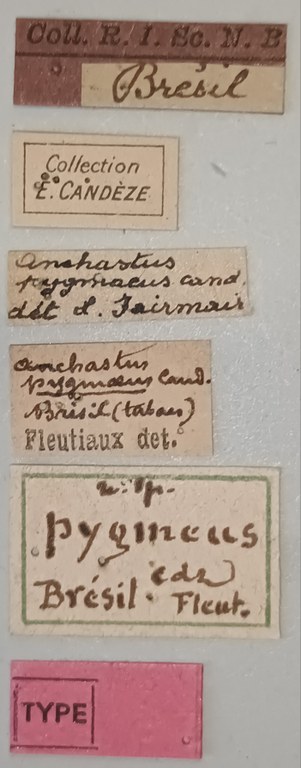 Coll. R. I. Sc. N. B
Brésil
Collection
E. CANDÈZE
Anchastus
pygmaeus cand.
dét d. Fairmair
Anchastus
pygmaeus Cand.
Brésil (tabac)
Fleutiaux det.
n. sp.
pygmeus
cdz
Brésil. Fleut.
TYPE